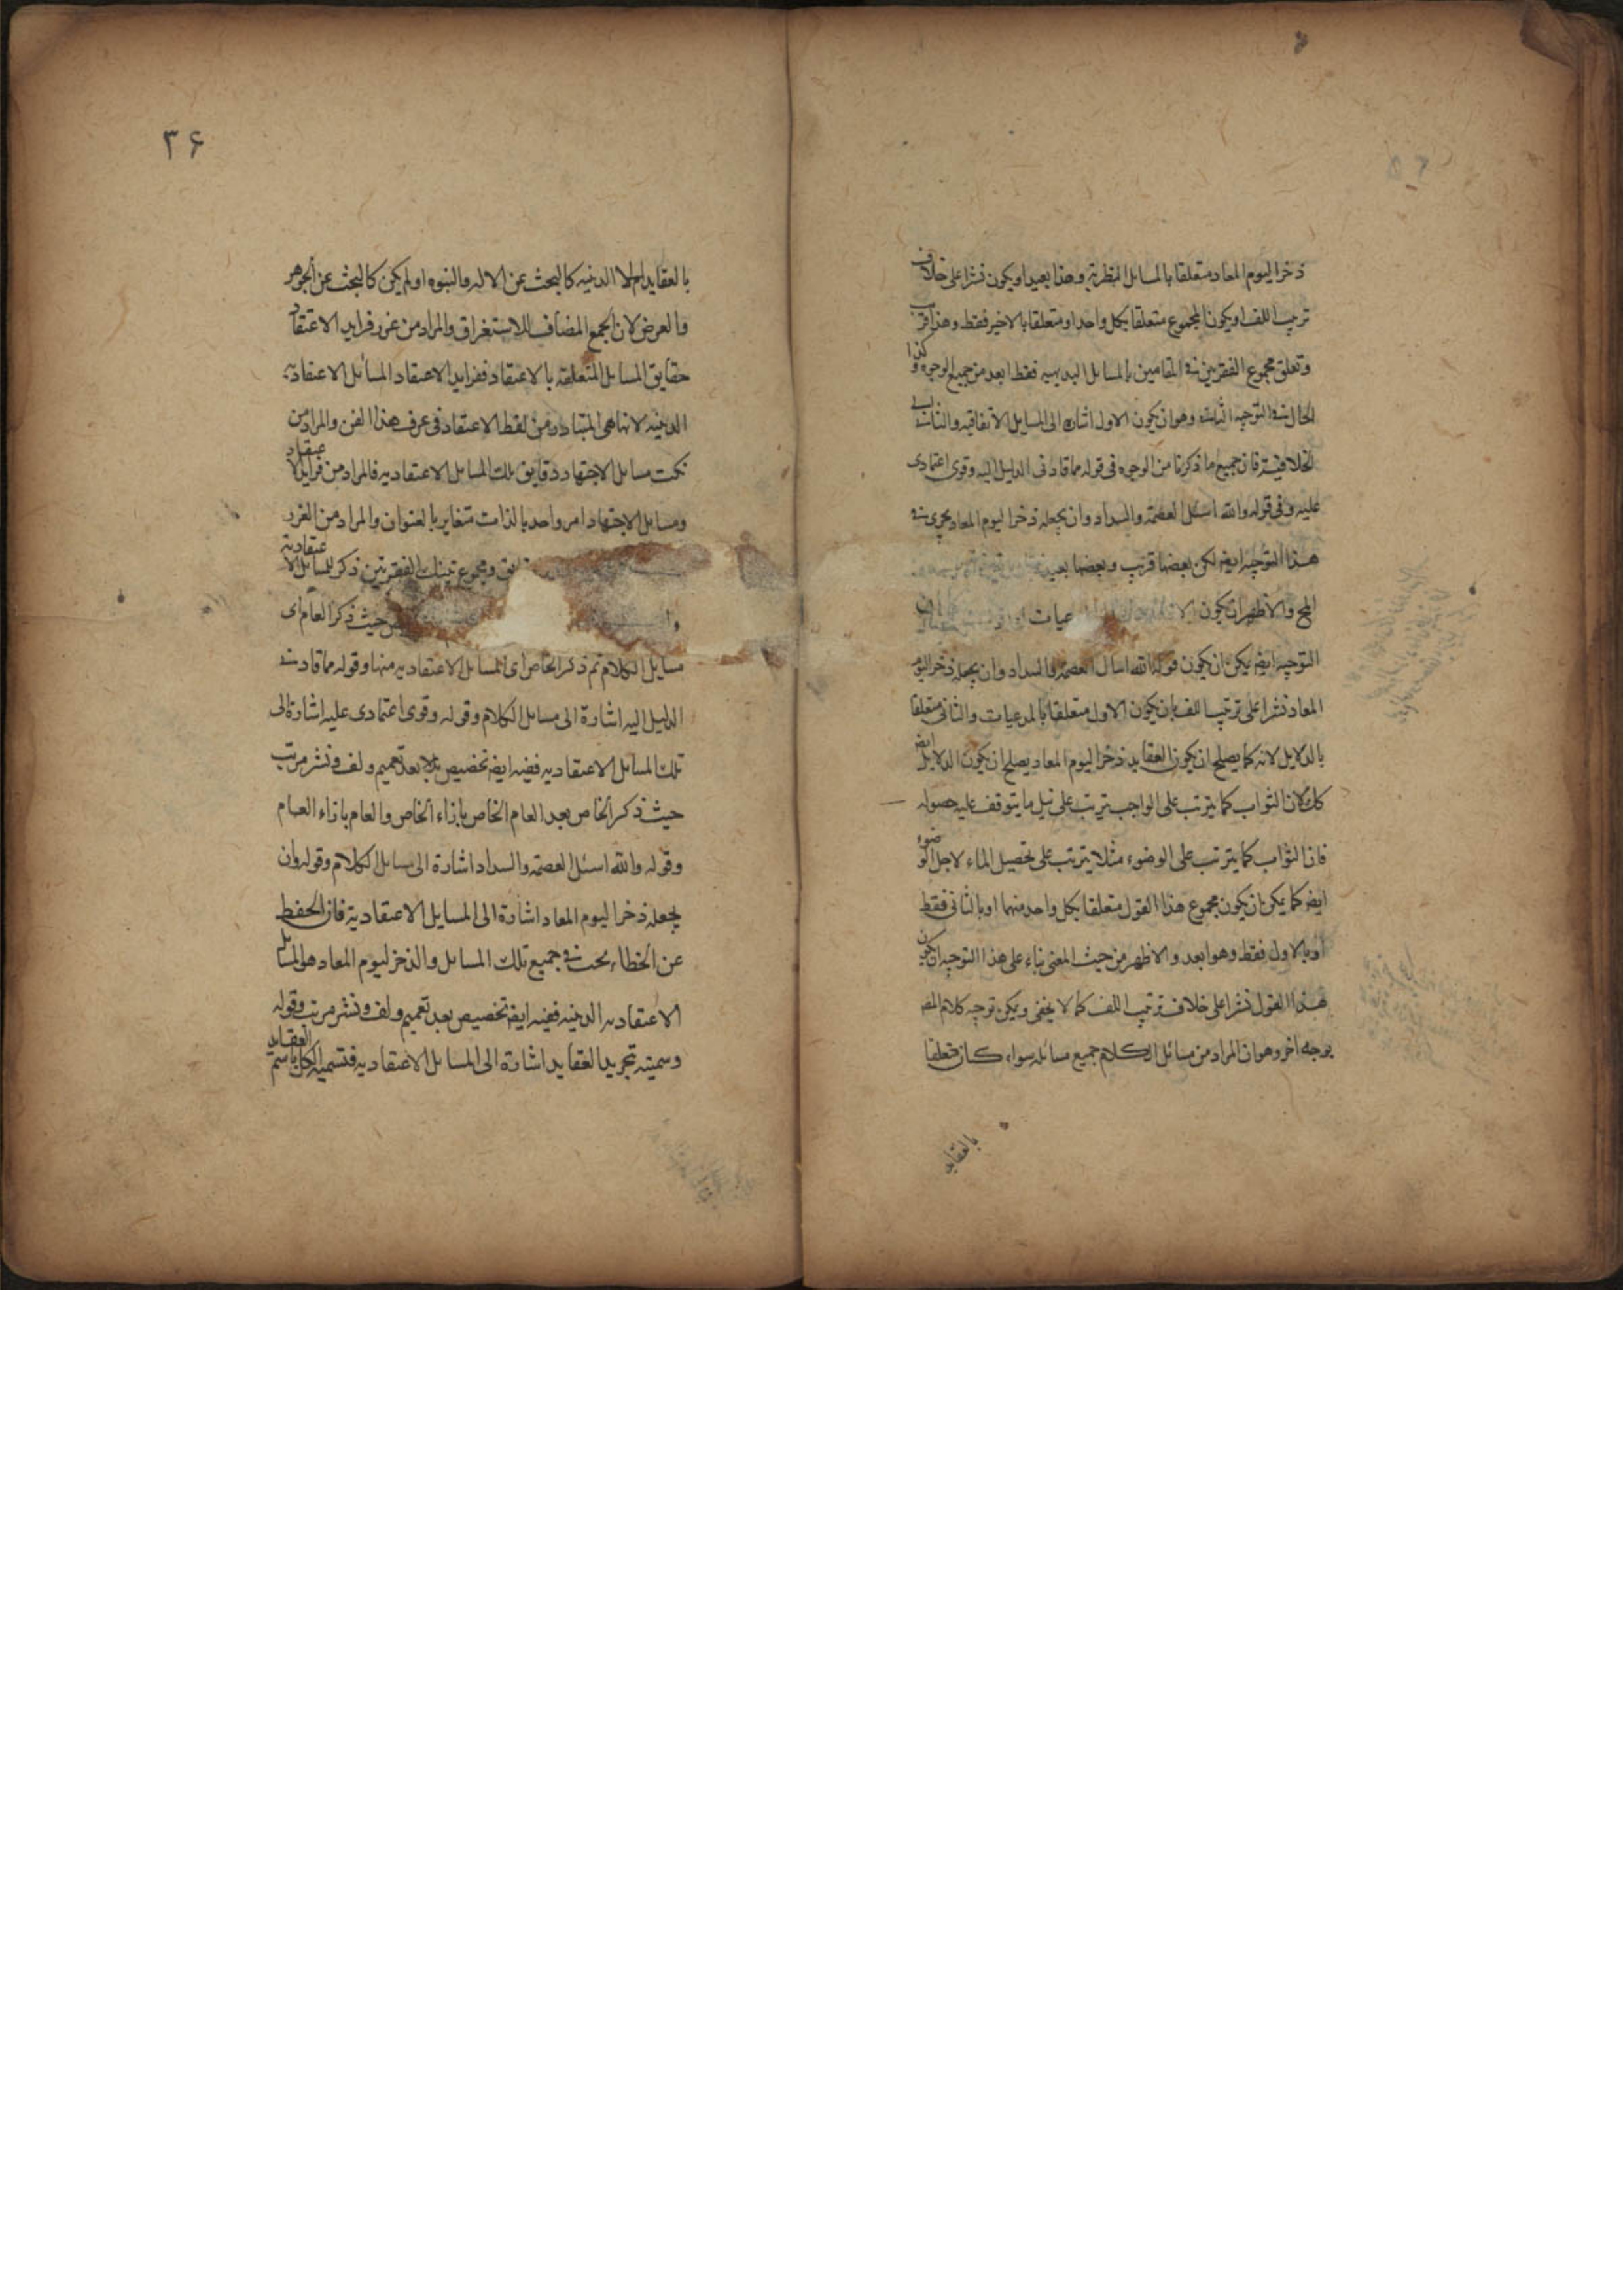 ذخرا ليوم المعاد متعلقا بالمسايل النظرية وهذا بعيد او يكون نشرا على خلاف
ترتيب اللف او يكون المجموع متعلقا بكل واحد او متعلقا بالاخير فقط وهذا قريب
وتعلق مجموع الفقرتين في المقامين بالمسايل البديهيه فقط ابعد من جميع الوجوه وكذا
الحال في التوجيه الثالث وهو ان يكون الاول اشارة الى المسايل الاتفاقيه والثاني الى
الخلافية فان جميع ما ذكرنا من الوجوه في قوله مما قادني الدليل اليه وقوى اعتمادى
عليه وفي قوله والله اسئل العصمة والسداد وان يجعله ذخرا ليوم المعاد يجرى في
هذا التوجيه ايض لكن بعضها قريب وبعضها بعيد
والاظهر ان يكون
التوجيه ايض يمكن ان يكون قوله الله اسال العصمة والسداد وان يجعله ذخر اليوم
المعاد نشرا على ترتيب اللف بان يكون الاول متعلقا بالمدعيات والثانى متعلقا
بالدلايل لانه كما يصلح ان يكون العقايد ذخرا ليوم المعاد يصلح ان يكون الدلايل ايض
كك لان الثواب كما يترتب على الواجب يترتب على نيل ما يتوقف عليه حصوله
فان الثواب كما يترتب على الوضوء مثلا يترتب على تحصيل الماء لاجل الوضوء
ايض كما يمكن ان يكون مجموع هذا القول متعلقا بكل واحد منهما او بالثانى فقط
او بالاول فقط وهو ابعد والاظهر من حيث المعنى بناء على هذا التوجيه ان يكون
هذا القول نشرا على خلاف ترتيب اللف كما لا يخفى ويمكن توجيه كلام المض
بوجه اخر وهو ان المراد من مسائل الكلام جميع مسائله سواء كان متعلقا
بالعقايد
۳۶
بالعقايد الدينيه كالبحث عن الاله والنبوه او لم يكن كالبحث عن الجوهر
والعرض لان الجمع المضاف للاستغراق والمراد من غرر فرايد الاعتقاد
حقايق المسايل المتعلقة بالاعتقاد ففرايد الاعتقاد المسائل الاعتقادية
الدينيه لانها هى المتبادر من لفظ الاعتقاد فى عرف هذا الفن والمراد من
نكت مسايل الاجتهاد دقايق تلك المسايل الاعتقاديه فالمراد من فرايد الاعتقاد
ومسايل الاجتهاد امر واحد بالذات متغاير بالعنوان والمراد من الغرر
ومجموع تينك الفقرتين ذكر للمسايل الاعتقادية
حيث ذكر العام اى
مسايل الكلام ثم ذكر الخاص اى المسايل الاعتقاديه منها وقوله مما قادنى
الدليل اليه اشارة الى مسايل الكلام وقوله وقوى اعتمادى عليه اشارة الى
تلك المسايل الاعتقاديه ففيه ايض تخصيص بعد تعميم ولف ونشر مرتب
حيث ذكر الخاص بعد العام الخاص بازاء الخاص والعام بازاء العام
وقوله والله اسئل العصمة والسداد اشارة الى مسايل الكلام وقوله وان
يجعله ذخرا ليوم المعاد اشارة الى المسايل الاعتقادية فان الحفظ
عن الخطاء بحث في جميع تلك المسايل والذخر ليوم المعاد هو المسايل
الاعتقاديه الدينيه ففيه ايض تخصيص بعد تعميم ولف ونشر مرتب وقوله
وسميته تجريد العقايد اشارة الى المسايل الاعتقاديه فتسميه الكل باسم العقايد